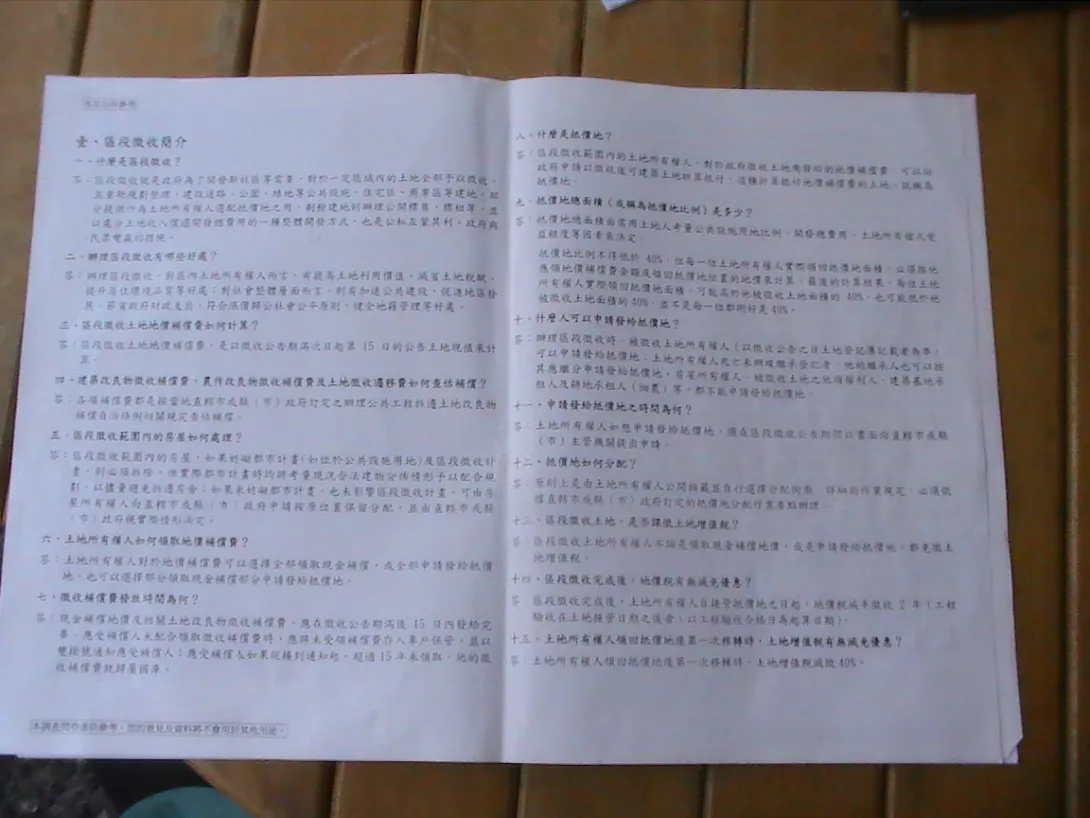 壹、區段徵收簡介
一、什麼是區段徵收?
答:區段徵收就是政府為了開發新社區等需要,對於一定區域內的土地全部予以徵收,
並重新規劃整理,建設道路、公園、綠地等公共設施,住宅區、商業區等建地,部
分提供作為土地所有權人選配抵價地之用,剩餘建地則辦理公開標售、標租等,並
以處分土地收入償還開發總費用的一種整體開發方式,也是公私互蒙其利,政府與
民眾雙贏的措施。
二、辦理區段徵收有哪些好處?
答:辦理區段徵收,對區內土地所有權人而言,有提高土地利用價值、減省土地稅賦、
提升居住環境品質等好處;對社會整體層面而言,則有加速公共建設、促進地區發
展、節省政府財政支出、符合漲價歸公社會公平原則、健全地籍管理等好處。
三、區段徵收土地地價補償費如何計算?
答:區段徵收土地地價補償費,是以徵收公告期滿次日起第 15 日的公告土地現值來計
算。
四、建築改良物徵收補償費、農作改良物徵收補償費及土地徵收遷移費如何查估補償?
答:各項補償費都是按當地直轄市或縣(市)政府訂定之辦理公共工程拆遷土地改良物
補償自治條例相關規定查估補償。
五、區段徵收範圍內的房屋如何處理?
答:區段徵收範圍內的房屋,如果妨礙都市計畫(如位於公共設施用地)及區段徵收計
畫,則必須拆除。惟實際都市計畫時均將考量現況合法建物分佈情形予以配合規
劃,以儘量避免拆遷房舍;如果未妨礙都市計畫,也未影響區段徵收計畫,可由房
屋所有權人向直轄市或縣(市)政府申請按原位置保留分配,並由直轄市或縣
(市)政府視實際情形決定。
六、土地所有權人如何領取地價補償費?
答:土地所有權人對於地價補償費可以選擇全部領取現金補償,或全部申請發給抵價
地,也可以選擇部分領取現金補償部分申請發給抵價地。
七、徵收補償費發放時間為何?
答:現金補償地價及相關土地改良物徵收補償費,應在徵收公告期滿後 15 日內發給完
畢,應受補償人未配合領取徵收補償費時,應將未受領補償費存入專戶保管,並以
雙掛號通知應受補償人;應受補償人如果從接到通知起,超過 15 年未領取,他的徵
收補償費就歸屬國庫。
本調查問作僅供參考,您的意見及資料將不會用於其他用途。
八、什麼是抵價地?
答:區段徵收範圍內的土地所有權人,對於政府徵收土地應發給的地價補償費,可以向
政府申請以徵收後可建築土地折算抵付,這種折算抵付地價補償費的土地,就稱為
抵價地。
九、抵價地總面積(或稱為抵價地比例)是多少?
答:抵價地總面積由需用土地人考量公共設施用地比例、開發總費用、土地所有權人受
益程度等因素來決定。
抵價地比例不得低於 40%,但每一位土地所有權人實際領回抵價地面積,必須按他
應領地價補償費金額及領回抵價地位置的地價來計算,最後的計算結果,每位土地
所有權人實際領回抵價地面積,可能高於他被徵收土地面積的 40%,也可能低於他
被徵收土地面積的 40%,並不是每一位都剛好是 40%。
十、什麼人可以申請發給抵價地?
答:辦理區段徵收時,被徵收土地所有權人(以徵收公告之日土地登記簿記載者為準)
可以申請發給抵價地;土地所有權人死亡未辦竣繼承登記者,他的繼承人也可以按
其應繼分申請發給抵價地。房屋所有權人、被徵收土地之他項權利人、建築基地承
租人及耕地承租人(佃農)等,都不能申請發給抵價地。
十一、申請發給抵價地之時間為何?
答:土地所有權人如想申請發給抵價地,須在區段徵收公告期間以書面向直轄市或縣
(市)主管機關提出申請。
十二、抵價地如何分配?
答:原則上是由土地所有權人公開抽籤並自行選擇分配街廓,詳細的作業規定,必須依
據直轄市或縣(市)政府訂定的抵價地分配作業要點辦理。
十三、區段徵收土地,是否課徵土地增值稅?
答:區段徵收土地所有權人不論是領取現金補償地價,或是申請發給抵價地,都免徵土
地增值稅。
十四、區段徵收完成後,地價稅有無減免優惠?
答:區段徵收完成後,土地所有權人自接管抵價地之日起,地價稅減半徵收 2 年(工程
驗收在土地接管日期之後者,以工程驗收合格日為起算日期)。
十五、土地所有權人領回抵價地後第一次移轉時,土地增值稅有無減免優惠?
答:土地所有權人領回抵價地後第一次移轉時,土地增值稅減徵 40%。